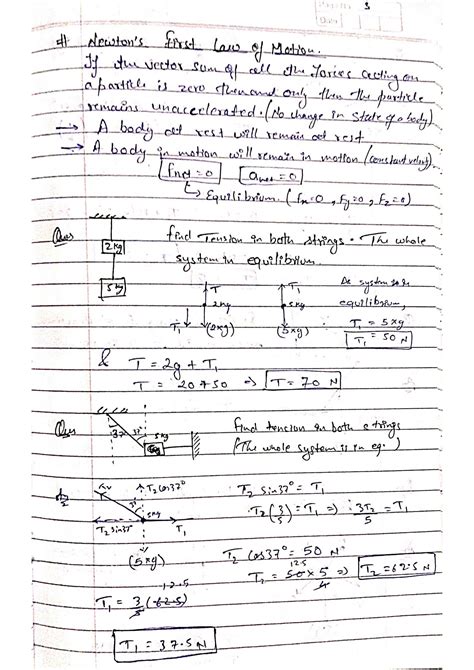 # Newton's First Law of Motion.
If the vector sum of all the forces acting on
a particle is zero then and only then the particle
remains unaccelerated. (No change in state of a body)
→ A body at rest will remain at rest
→ A body in motion will remain in motion (constant velocity).
Fnet = 0 anet = 0
↳ Equilibrium. (Fx=0, Fy=0, Fz=0)
Ques find Tension in both strings. The whole
system in equilibrium.
2kg
5kg
T 2kg T1 (2×g)
T1 5kg (5×g)
As system is in
equilibrium,
T1 = 5×g
T1 = 50 N
& T = 2g + T1
T = 20+50 ⇒ T = 70 N
Ques find tension in both strings
(The whole system is in eq.)
37 37° 5kg
T2 T2 cos37° 37° 5kg
T2 sin37° T1
(5×g)
T2 sin37° = T1
T2(3/5) = T1 ⇒ 3T2/5 = T1
T2 cos37° = 50 N
T2 = 50×5/4 ⇒ T2 = 62.5 N
12.5
T1 = 3/5 (62.5)
12.5
T1 = 37.5 N